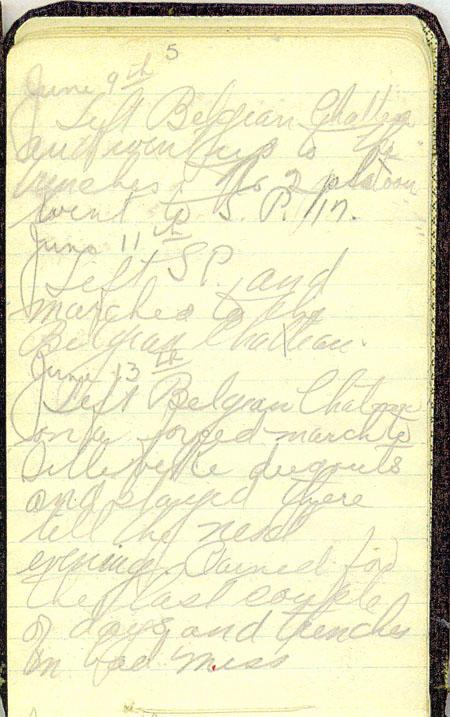 5
June 9th
Left Belgian Chattea
and went up to the
trenches. No 2 platoon
went to S. P. 17.
June 11th
Left S.P. and
marched to the
Belgian Chatteau.
June 13th
Left Belgian Chateau
on a forged march to
dugouts
and stayed there
till the next
evening. Rained for
the last couple
of days and trenches
in bad miss